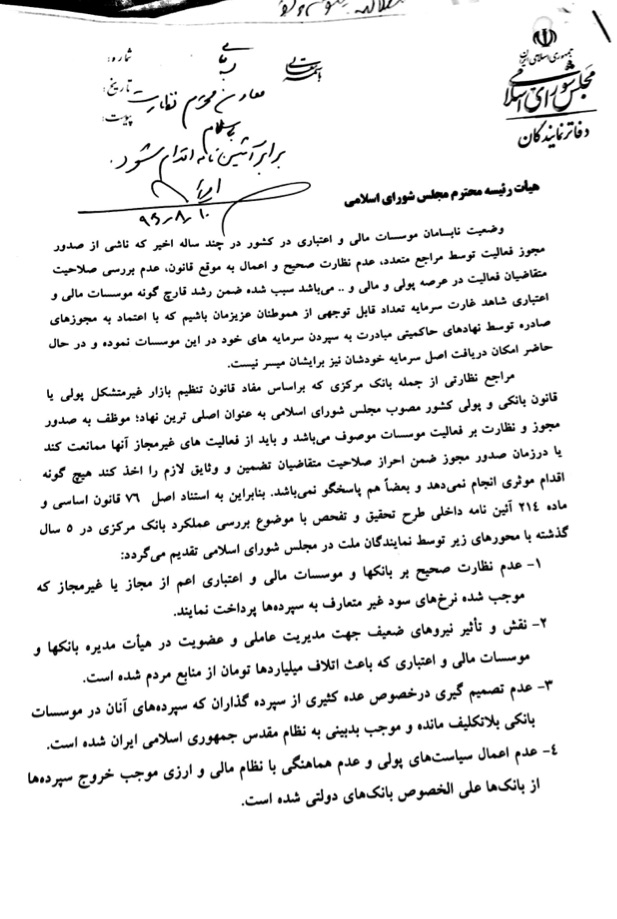 جمهوری اسلامی ایران
مجلس شورای اسلامی
دفاتر نمایندگان
شماره:
تاریخ:
پیوست:
معاون محترم نظارت
با سلام
برابر آئین نامه اقدام شود.
۹۶-۸-۱۰
هیات رئیسه محترم مجلس شورای اسلامی
وضعیت نابسامان موسسات مالی و اعتباری در کشور در چند ساله اخیر که ناشی از صدور
مجوز فعالیت توسط مراجع متعدد، عدم نظارت صحیح و اعمال به موقع قانون، عدم بررسی صلاحیت
متقاضیان فعالیت در عرصه پولی و مالی و .. می‌باشد سبب شده ضمن رشد قارچ گونه موسسات مالی و
اعتباری شاهد غارت سرمایه تعداد قابل توجهی از هموطنان عزیزمان باشیم که با اعتماد به مجوزهای
صادره توسط نهادهای حاکمیتی مبادرت به سپردن سرمایه های خود در این موسسات نموده و در حال
حاضر امکان دریافت اصل سرمایه خودشان نیز برایشان میسر نیست.
مراجع نظارتی از جمله بانک مرکزی که براساس مفاد قانون تنظیم بازار غیرمتشکل پولی یا
قانون بانکی و پولی کشور مصوب مجلس شورای اسلامی به عنوان اصلی ترین نهاد؛ موظف به صدور
مجوز و نظارت بر فعالیت موسسات موصوف می‌باشد و باید از فعالیت های غیرمجاز آنها ممانعت کند
یا درزمان صدور مجوز ضمن احراز صلاحیت متقاضیان تضمین و وثایق لازم را اخذ کند هیچ گونه
اقدام موثری انجام نمی‌دهد و بعضاً هم پاسخگو نمی‌باشد. بنابراین به استناد اصل ۷۶ قانون اساسی و
ماده ۲۱۴ آئین نامه داخلی طرح تحقیق و تفحص با موضوع بررسی عملکرد بانک مرکزی در ۵ سال
گذشته با محورهای زیر توسط نمایندگان ملت در مجلس شورای اسلامی تقدیم می‌گردد:
۱- عدم نظارت صحیح بر بانکها و موسسات مالی و اعتباری اعم از مجاز یا غیرمجاز که
موجب شده نرخ‌های سود غیر متعارف به سپرده‌ها پرداخت نمایند.
۲- نقش و تأثیر نیروهای ضعیف جهت مدیریت عاملی و عضویت در هیأت مدیره بانکها و
موسسات مالی و اعتباری که باعث اتلاف میلیاردها تومان از منابع مردم شده است.
۳- عدم تصمیم گیری درخصوص عده کثیری از سپرده گذاران که سپرده‌های آنان در موسسات
بانکی بلاتکلیف مانده و موجب بدبینی به نظام مقدس جمهوری اسلامی ایران شده است.
۴- عدم اعمال سیاست‌های پولی و عدم هماهنگی با نظام مالی و ارزی موجب خروج سپرده‌ها
از بانک‌ها علی الخصوص بانک‌های دولتی شده است.